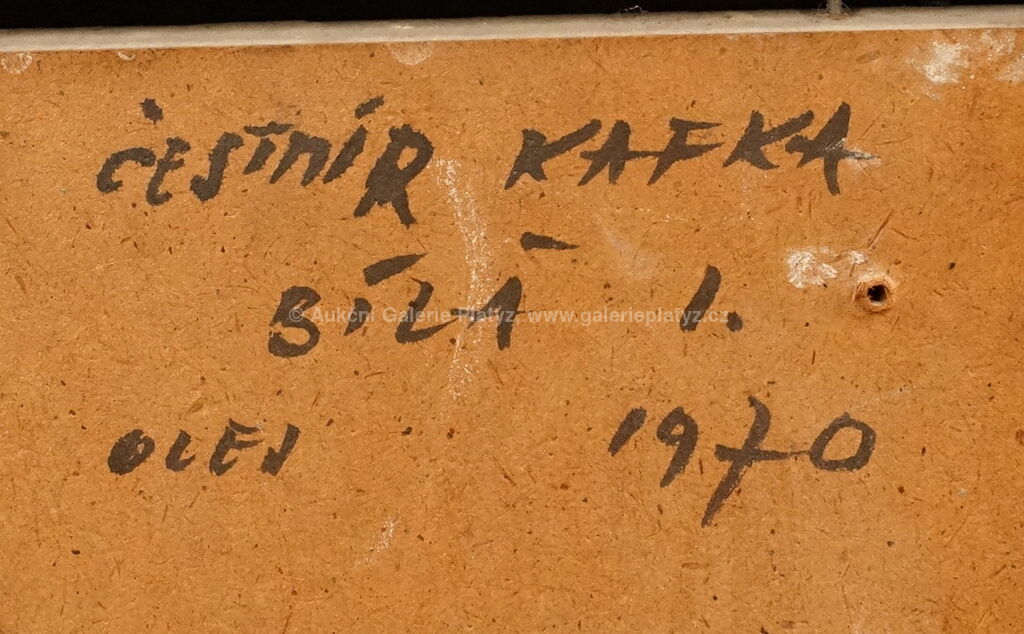 ČESTMÍR KAFKA
BÍLÁ 1.
© Aukční Galerie Platýz, www.galerieplatyz.cz
OLEJ 1970